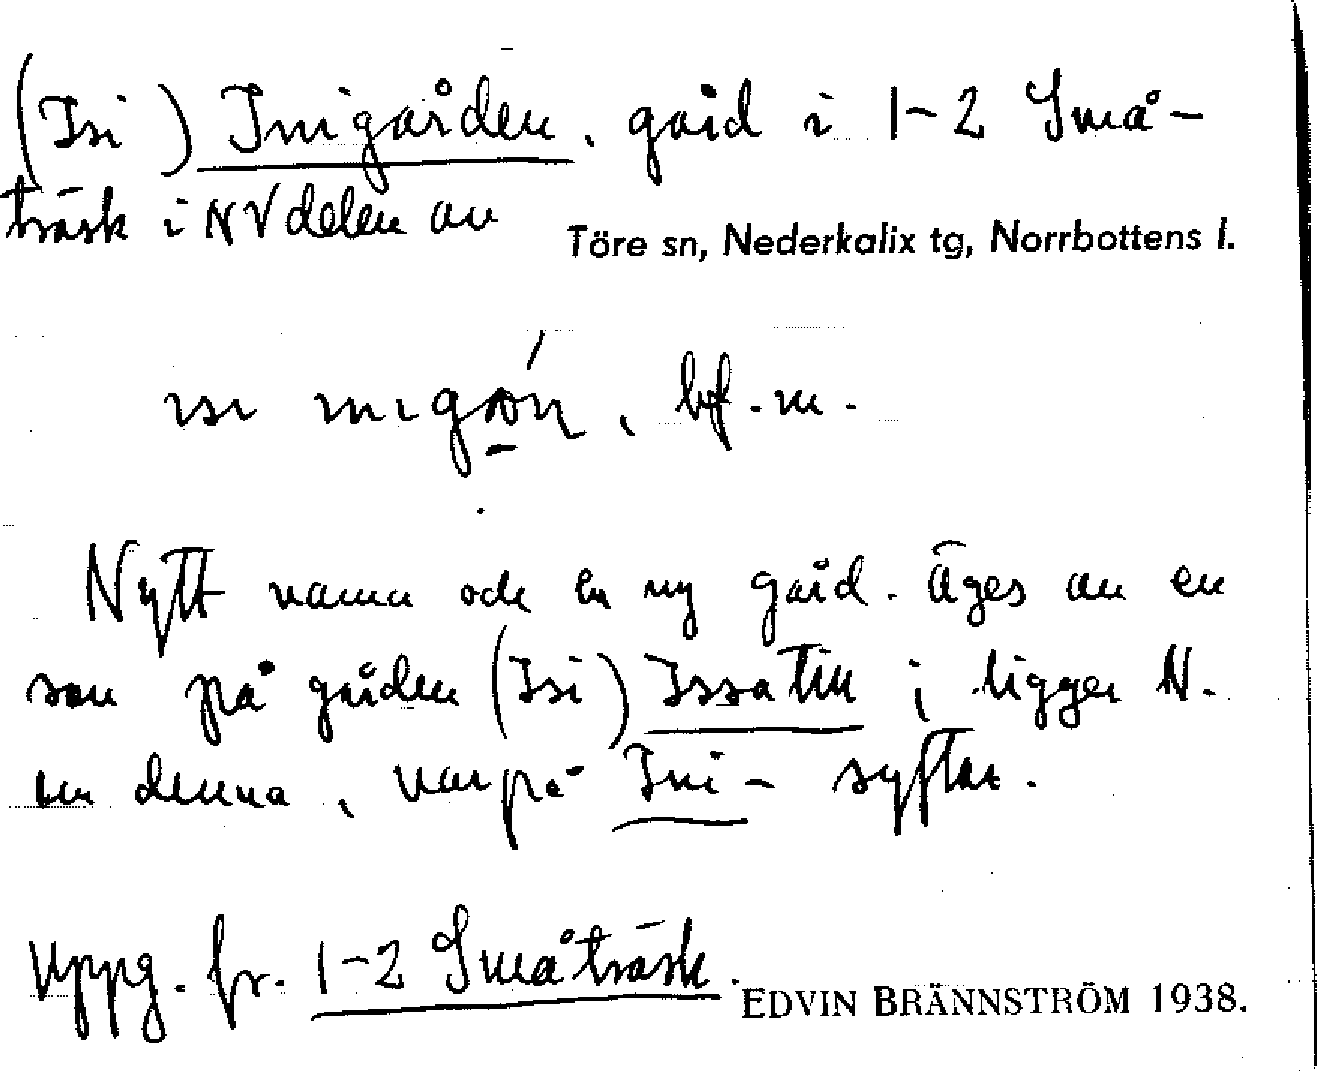 (Isi) Inigården, gård i 1-2 Små-
träsk i NV delen av
Töre sn, Nederkalix tg, Norrbottens l.
bf. m.
Nytt namn och en ny gård. Äges av en
son på gården (Isi) Issa tin i ligger N.
om denna, varpå Ini- syftar.
Uppg. fr. 1-2 Småträsk.
EDVIN BRÄNNSTRÖM 1938.